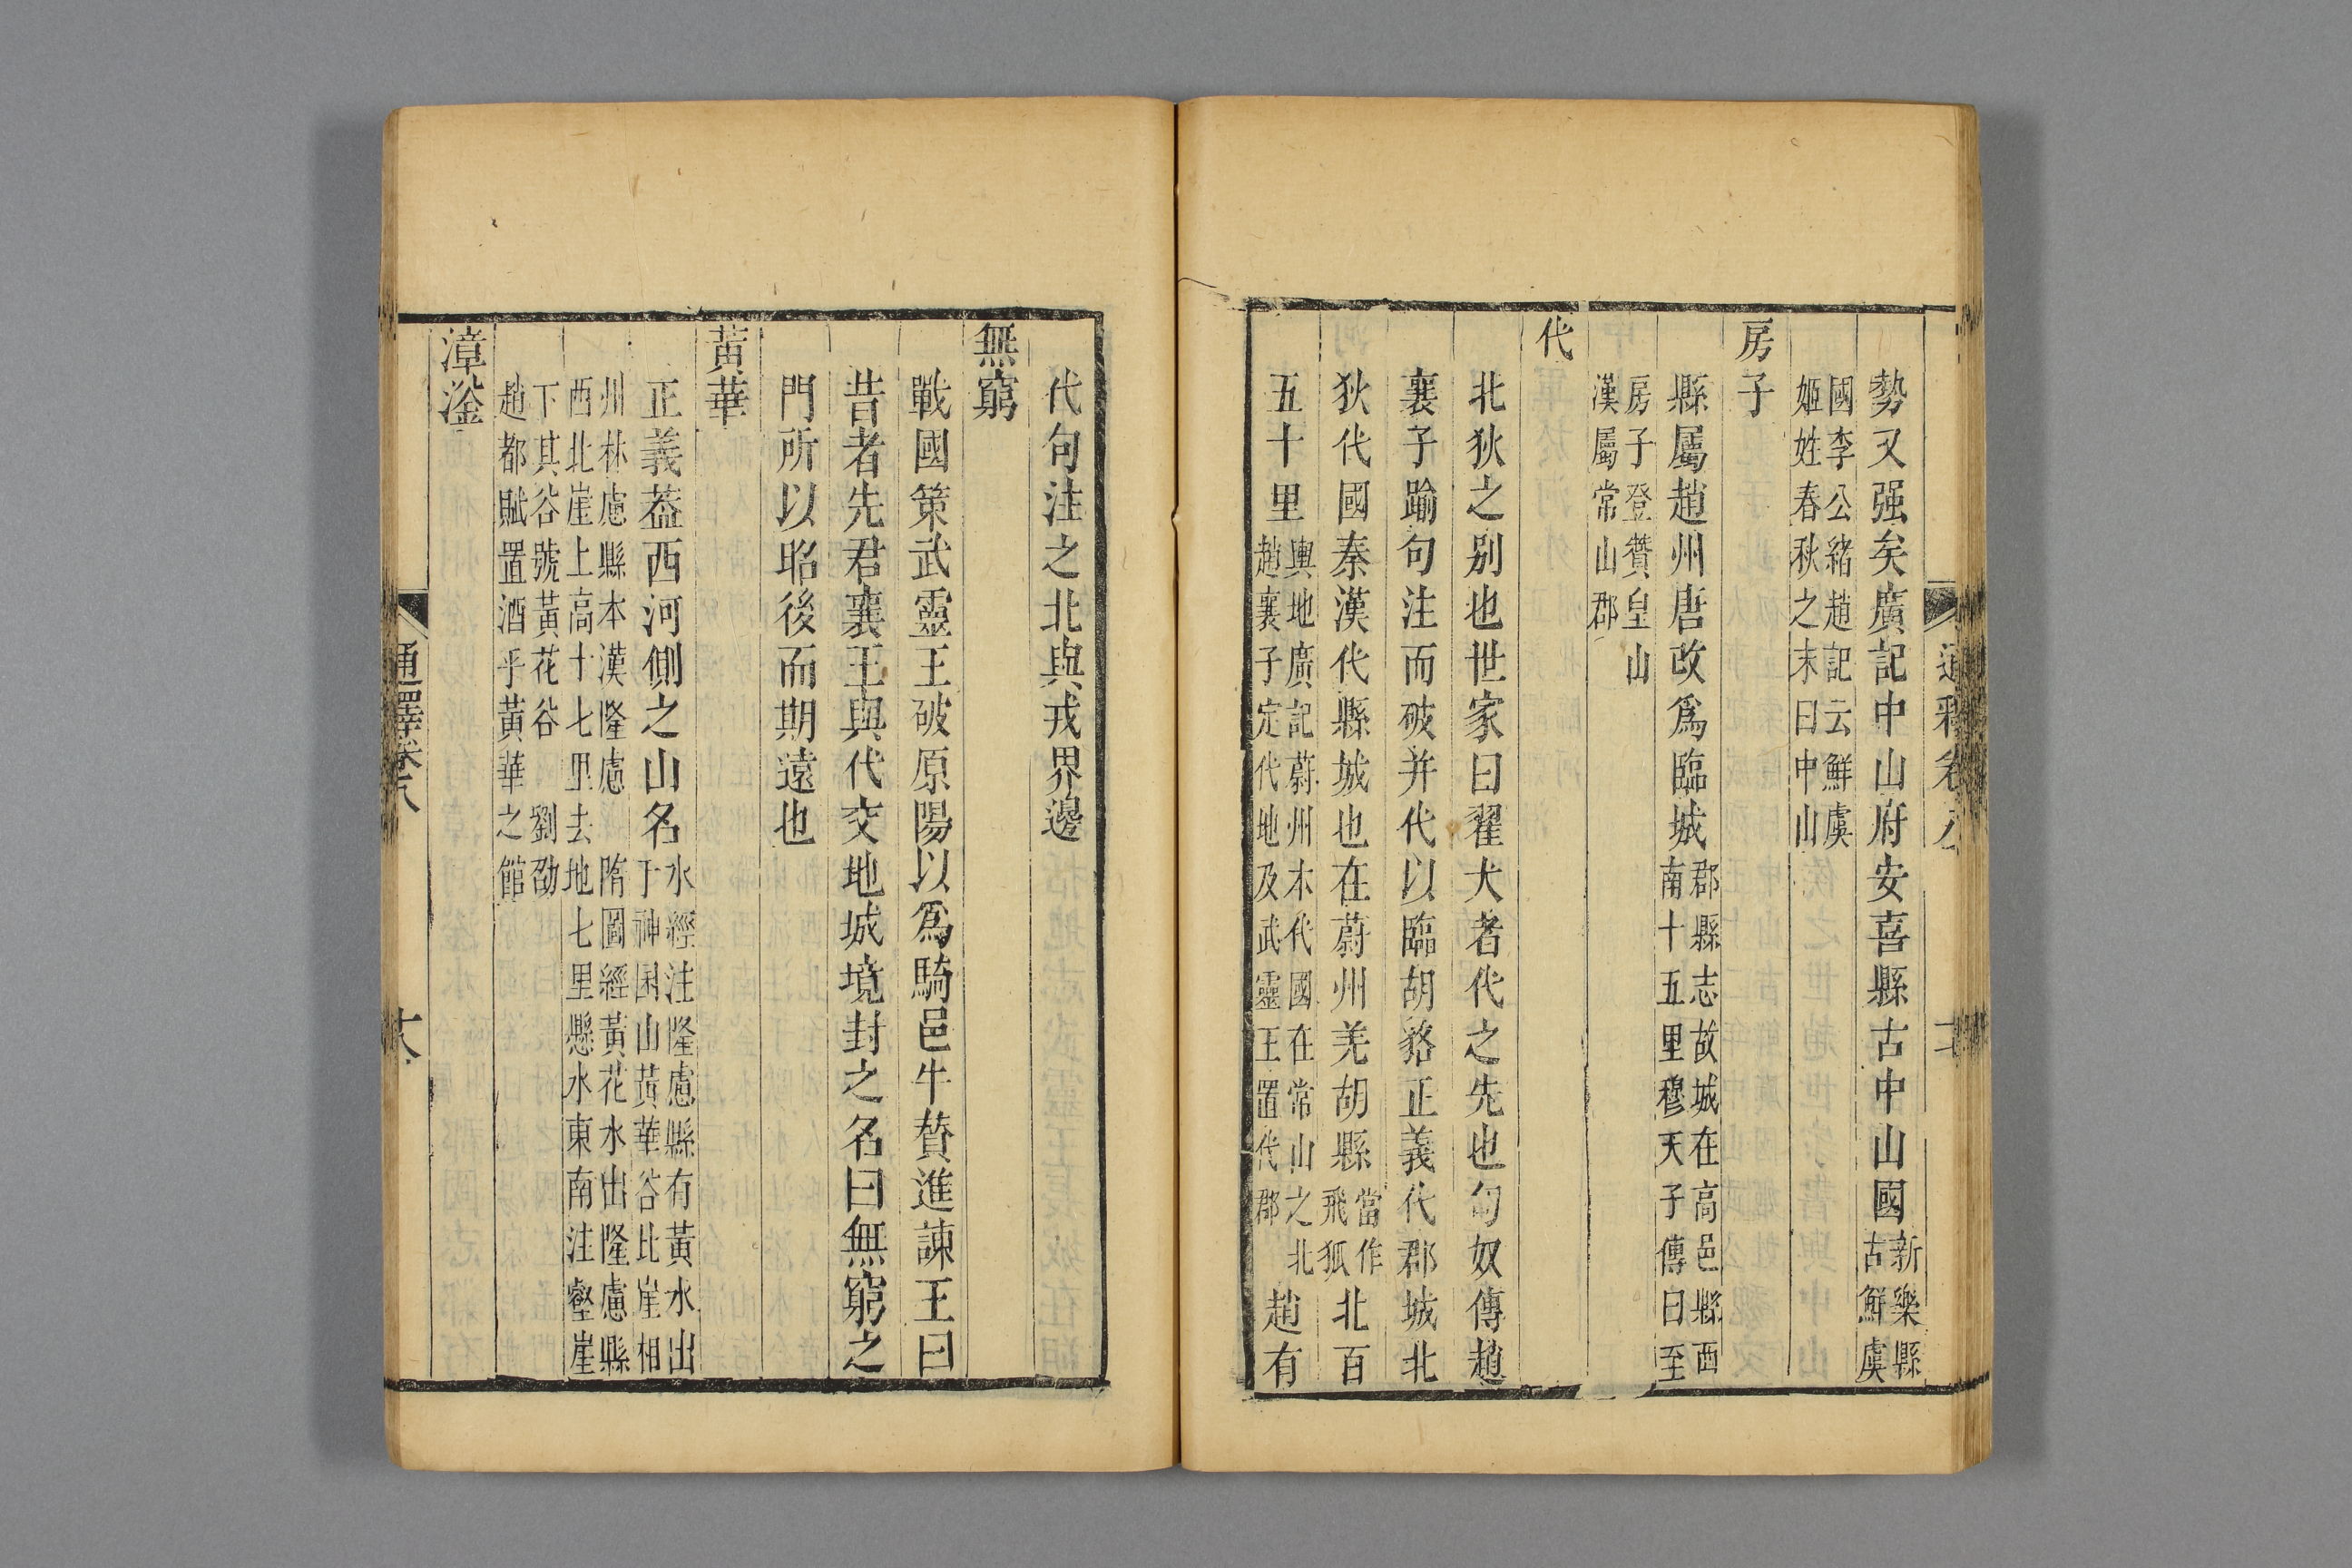 勢又强矣廣記中山府安喜縣古中山國新樂縣古鮮虞
國李公緒趙記云鮮虞姬姓春秋之末曰中山
房子
縣屬趙州唐改爲臨城郡縣志故城在高邑縣西南十五里穆天子傳曰至
房子登贊皇山漢屬常山郡
代
北狄之别也世家曰翟犬者代之先也匈奴傳趙
襄子踰句注而破并代以臨胡貉正義代郡城北
狄代國秦漢代縣城也在蔚州羌胡縣當作飛狐北百
五十里輿地廣記蔚州木代國在常山之北趙襄子定代地及武靈王置代郡趙有
通釋卷八
代句注之北與戎界邊
無窮
戰國策武靈王破原陽以爲騎邑牛贊進諫王曰
昔者先君襄王與代交地城境封之名曰無窮之
門所以昭後而期遠也
黃華
正義葢西河側之山名水經注隆慮縣有黃水出于神囷山黃華谷比崖相
州林慮縣本漢隆慮隋圖經黃花水出隆慮縣西北崖上高十七里去地七里懸水東南注壑崖
下其谷號黃花谷劉劭趙都賦置酒乎黃華之館
漳滏
通釋卷八
十八